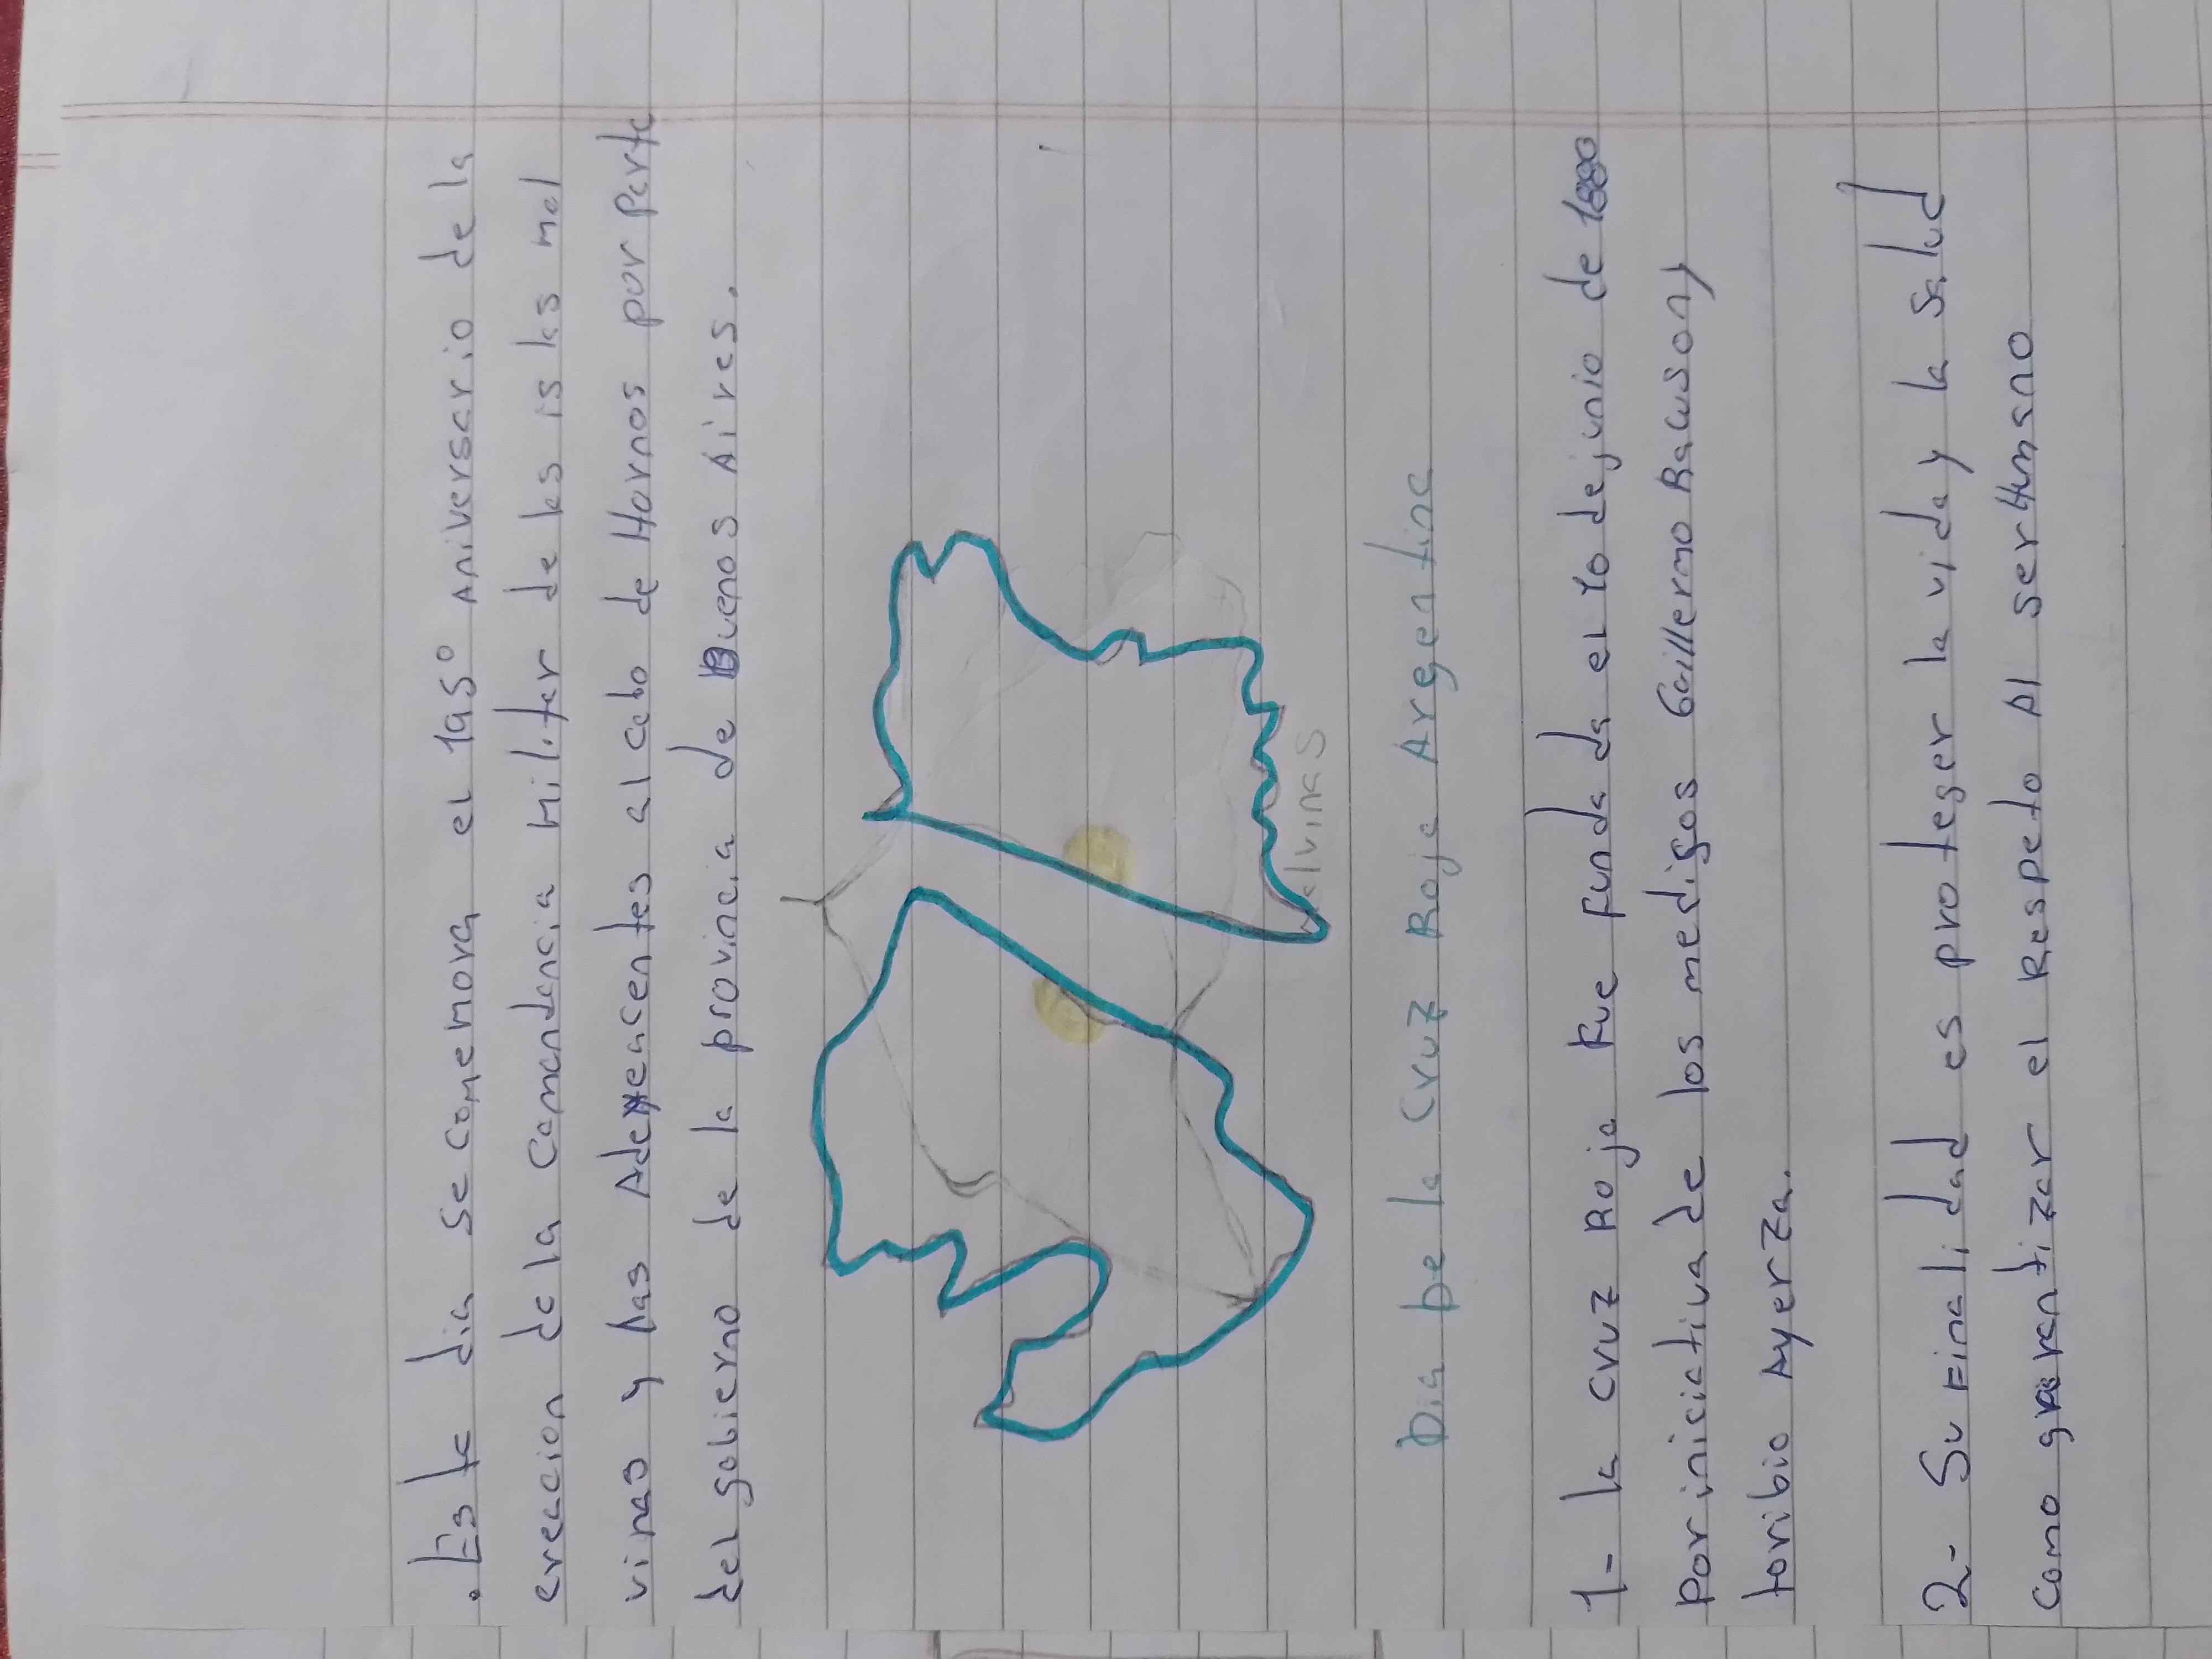 . Este dia se comemora el 195° Aniversario de la
creacion de la Comandancia Militar de las islas mal
vinas y las Adeyacentes al cabo de Hornos por parte
del gobierno de la provincia de Buenos Aires.
alvinas
Dia De la Cruz Roja Argentina
1- la cruz Roja Fue fundada el 10 de junio de 1880
Por iniciativa de los medigos Guillermo Racuson y
toribio Ayerza.
2- Su Finalidad es proteger la vida y la salud
como garantizar el Respeto Al ser Humano